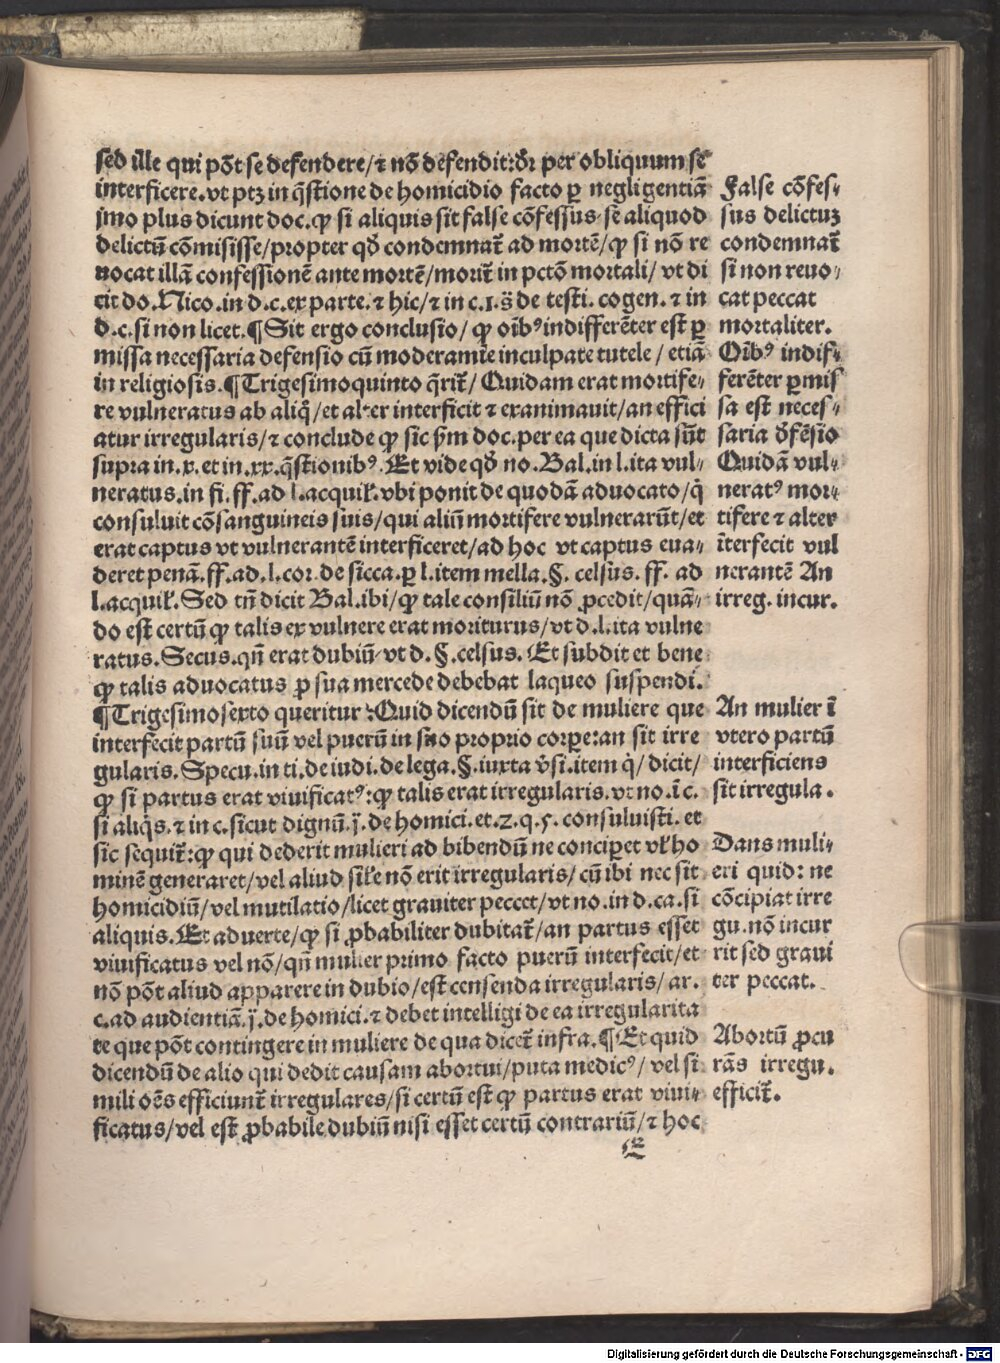 sed ille qui põt se defendere/⁊ nõ defendit:dr̃ per obliquum se
interficere.vt ptꝫ in q̃stione de homicidio facto ꝑ negligentiã
jmo plus dicunt doc.ꝙ si aliquis sit false cõfessus se aliquod
delictũ cõmisisse/propter qd̃ condemnat̃ ad mortẽ/ꝙ si nõ re
uocat illã confessionẽ ante mortẽ/morit̃ in pctõ mortali/ vt di
cit do.Nico.in d.c.ex parte.⁊ hic/⁊ in c.1.s̃ de testi.cogen.⁊ in
d.c.si non licet.¶Sit ergo conclusio/ ꝙ oĩbꝰ indifferẽter est ꝑ
missa necessaria defensio cũ moderamĩe inculpate tutele / etiã
in religiosis.¶Trigesimoquinto q̃rit̃/ Quidam erat mortife⸗
re vulneratus ab aliq̃/et alter interficit ⁊ exanimauit/an effici
atur irregularis/⁊ conclude ꝙ sic ẜm doc.per ea que dicta sũt
supra in.x.et in.xx.q̃stionibꝰ. Et vide qd̃ no.Bal.in l.ita vul⸗
neratus.in fi.ff.ad l.acquił.vbi ponit de quodã aduocato/q̃
consuluit cõsanguineis suis/qui aliũ mortifere vulnerarũt/et
erat captus vt vulnerantẽ interficeret/ad hoc vt captus eua⸗
deret penã.ff.ad.l.cor.de sicca.ꝑ l.item mella.§. celsus. ff. ad
l.acquił.Sed tñ dicit Bal.ibi/ꝙ tale consiliũ nõ ꝓcedit/quã⸗
do est certũ ꝙ talis ex vulnere erat moriturus/vt d.l.ita vulne
ratus.Secus.qñ erat dubiũ vt d.§.celsus. Et subdit et bene
ꝙ talis aduocatus ꝓ sua mercede debebat laqueo suspendi.
¶Trigesimosexto queritur :Quid dicendũ sit de muliere que
interfecit partũ suũ vel puerũ in suo proprio corpe:an sit irre
gularis.Specu.in ti.de iudi.delega.§.iuxta ṽsi.item q̃/ dicit/
ꝙ si partus erat viuificatꝰ:ꝙ talis erat irregularis.vt no.ĩ c.
si aliq̃s.⁊ in c.sicut dignũ.j̃.de homici.et.2.q.5.consuluisti.et
sic sequit̃:ꝙ qui dederit mulieri ad bibendũ ne conciperet vł ho
minẽ generaret/vel aliud sĩle nõ erit irregularis/ cũ ibi nec sit
homicidiũ/vel mutilatio/licet grauiter peccet/vt no.in d.ca.si
aliquis.Et aduerte/ꝙ si ꝓbabiliter dubitat̃/an partus esset
viuificatus vel nõ/qñ mulier primo facto puerũ interfecit/et
nõ põt aliud apparere in dubio/est censenda irregularis/ ar.
c.ad audientiã.j̃.de homici.⁊ debet intelligi de ea irregularita
te que põt contingere in muliere de qua dicet̃ infra.¶Et quid
dicendũ de alio qui dedit causam abortui/puta medicꝰ/ vel si
mili oẽs efficiunt̃ irregulares/si certũ est ꝙ partus erat viui⸗
ficatus/vel est ꝓbabile dubiũ nisi esset certũ contrariũ/⁊ hoc
E
False cõfes⸗
sus delictuꝫ
condemnat̃
si non reuo⸗
cat peccat
mortaliter.
Oĩbꝰ indif⸗
ferẽter ꝑmis
sa est neces⸗
saria d̃fẽsio
Quidã vul⸗
neratꝰ mor⸗
tifere ⁊ alter
ĩterfecit vul
nerantẽ An
irreg. incur.
An mulier ĩ
vtero partũ
interficiens
sit irregula.
Dans muli⸗
eri quid: ne
cõcipiat irre
gu. nõ incur
rit sed graui
ter peccat.
Abortũ ꝓcu
rãs irregu.
efficit̃.
Digitalisierung gefördert durch die Deutsche Forschungsgemeinschaft - DFG